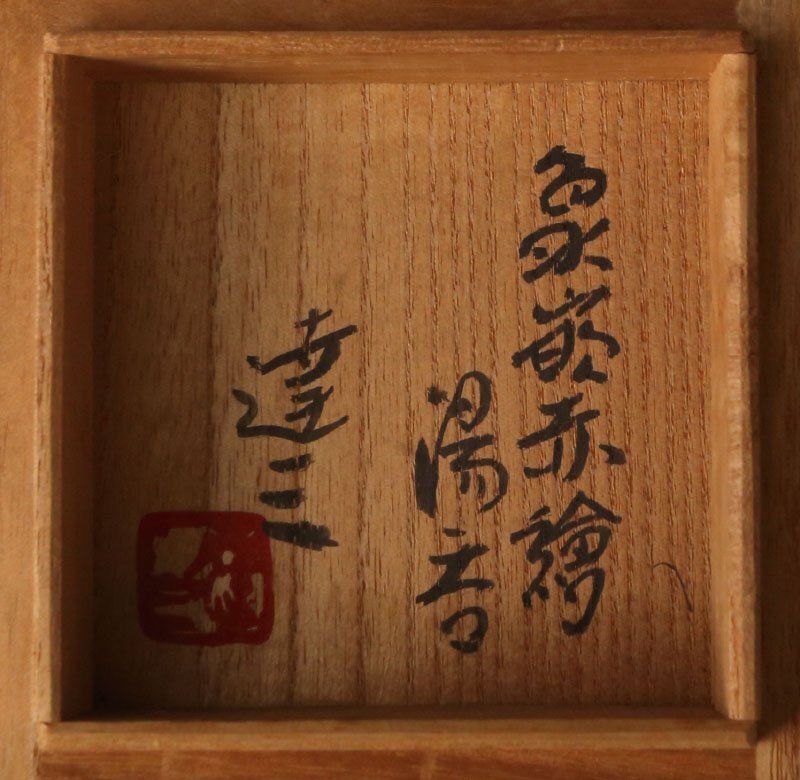 象嵌赤繪
湯呑
達三